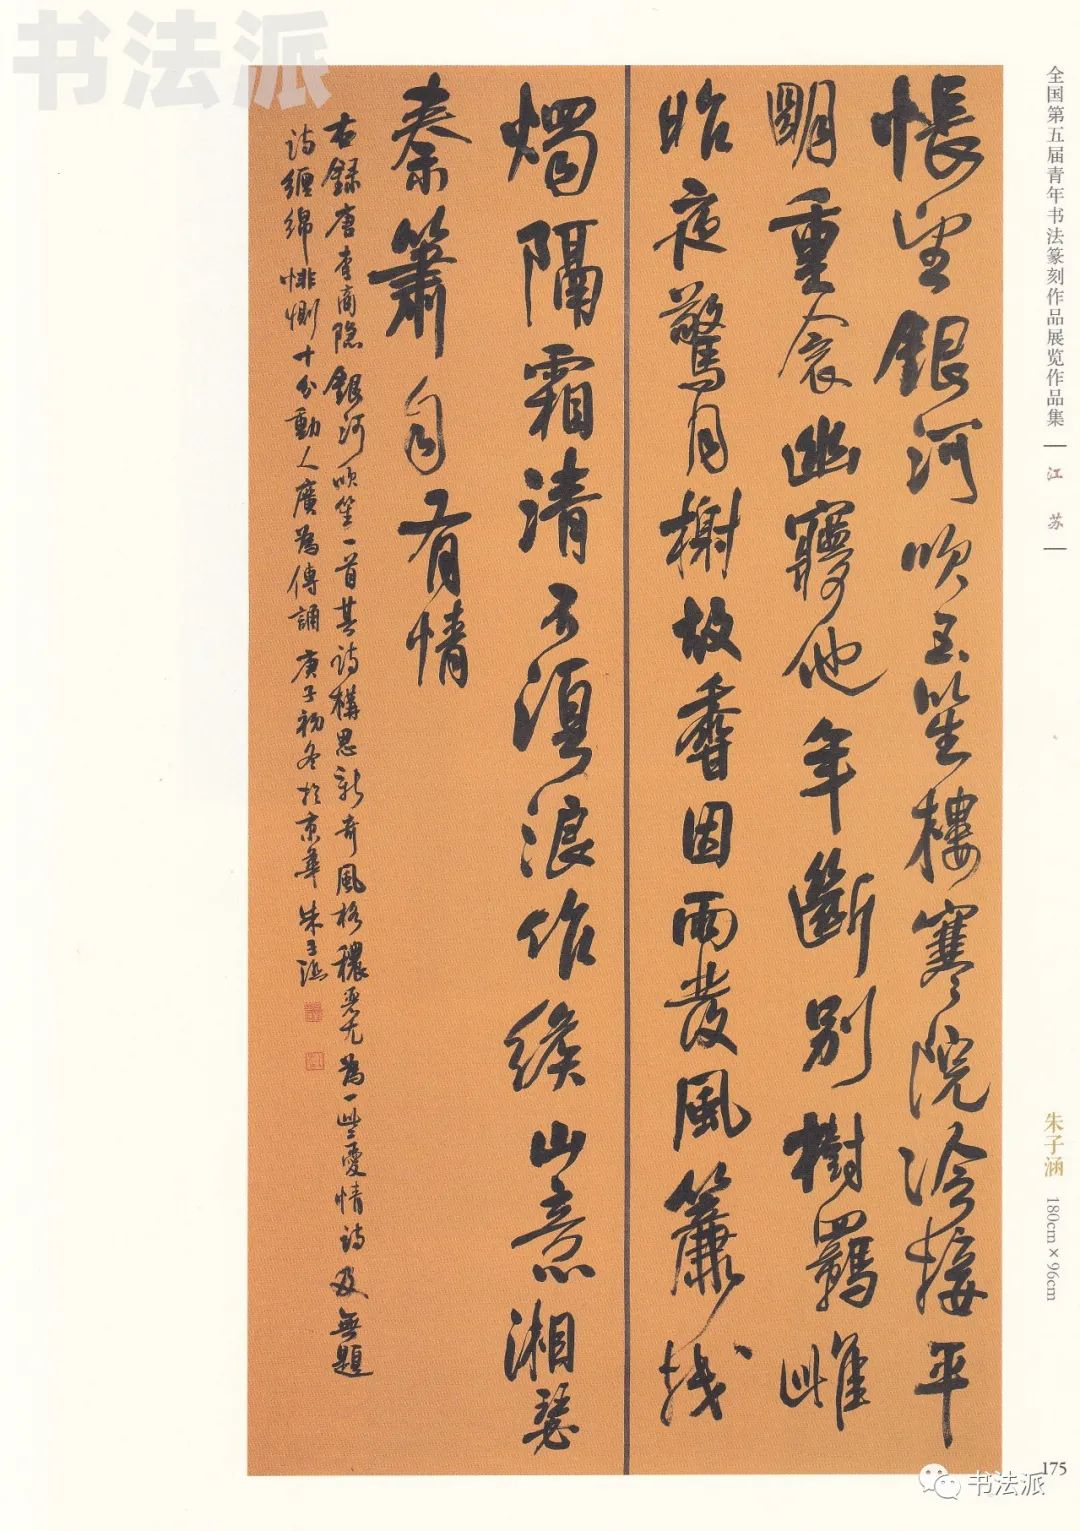 书法派
全国第五届青年书法篆刻作品展览作品集 江苏
朱子涵 180cm×96cm
悵望銀河吹玉笙樓寒院冷接平
明重衾幽夢他年斷別樹羈雌
昨夜驚月榭故香因雨發風簾残
燭隔霜清不須浪作緱山意湘瑟
秦簫自有情
右録唐李商隐銀河吹笙一首其诗構思新奇風格穠麗尤為一些愛情诗及無題
诗纏綿悱惻十分動人廣為傳誦 庚子初冬於京華 朱子涵
175
书法派